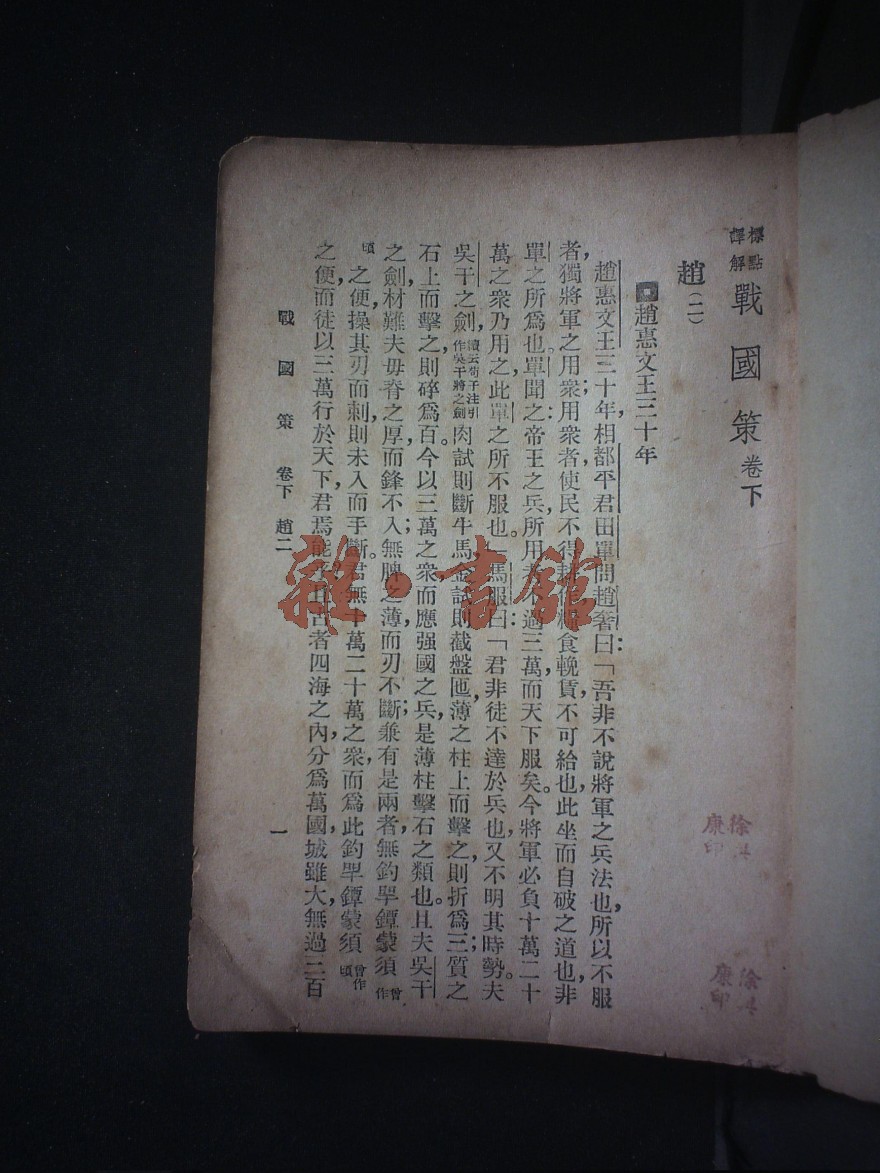 標點
譯解
戰國策 卷下
趙(二)
趙惠文王三十年
趙惠文王三十年,相都平君田單問趙奢曰:「吾非不說將軍之兵法也,所以不服
者,獨將軍之用衆;用衆者,使民不得耕食輓賃,不可給也,此坐而自破之道也,非
單之所爲也。單聞之:帝王之兵,所用者不過三萬,而天下服矣。今將軍必負十萬二十
萬之衆乃用之,此單之所不服也。」馬服曰:「君非徒不達於兵也,又不明其時勢。夫
吳干之劍,讀云荀子注引作吳干將之劍肉試則斷牛馬,金試則截盤匜,薄之柱上而擊之,則折爲三;質之
石上而擊之,則碎爲百。今以三萬之衆而應强國之兵,是薄柱擊石之類也。且夫吳干
之劍材難,夫毋脊之厚,而鋒不入;無脾之薄,而刃不斷;兼有是兩者,無釣㔁鐔蒙須曾作
頃之便,操其刃而刺,則未入而手斷。君無十萬二十萬之衆,而爲此釣㔁鐔蒙須曾作頃
之便,而徒以三萬行於天下,君焉能乎?且古者四海之內,分爲萬國,城雖大,無過三百
戰國策 卷下 趙二
一
雜·書館
徐
康印
徐
康印